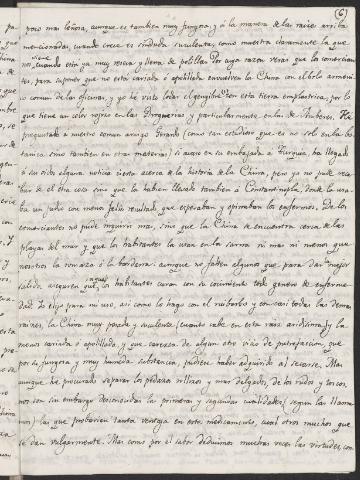 (6)
poco mas leñosa, aunque es tambien muy fungosa, y á la manera de las raices arriba
mencionadas, cuando crece es hinchada suculenta, como muestra claramente la que
nos sirve, cuando está ya reseca y llena de polilla. Por cuya razon veras que los comercian-
tes, para suponer que no está cariada ó apolillada envuelven la China con el bolo armeni-
co comun de las oficinas, y yo he visto todo el gengibre con esta tierra emplastica, por lo
que tiene un color rojizo en las Droguerias y particularmente en las de Amberes. He
preguntado á nuestro comun amigo Gerardo (como tan estudioso que es no solo en la bo-
tanica sino tambien en otras materias) si acaso en su embajada á Turquia, ha llegado
á su oido alguna noticia cierta acerca de la historia de la China, pero yo no pude reca-
bar de el otra cosa sino que la habian llevado tambien á Constantinopla, donde la usa-
ba un judio con menos feliz resultado que esperaban y opinaban los enfermos. De los
comerciantes no pude inquirir mas, sino que la China se encuentra cerca de las
playas del mar y que los habitantes la usan en la sarna ni mas ni menos que
nosotros la romaza ó la bardana: aunque no faltan algunos que para dar mejor
salida, aseguren que los habitantes curan con su cocimiento todo genero de enferme-
dad. Yo elijo para mi uso, asi como lo hago con el ruibarbo y con casi todas las demas
raices, la China muy pesada y suculenta (cuanto cabe en esta raiz aridisima) y la
menos cariada ó apolillada, y que carezca de algun otro vicio de putrefaccion, que
por su fungosa y muy humeda substancia, pudiere haber adquirido al secarse. Mas
aunque he procurado separar los pedazos rollizos y mas delgados, de los rudos y torcos,
nos son sin embargo desconocidas las primeras y segundas cualidades (segun las llama-
mos) las que probarian tanta ventaja en este medicamento, casi otros muchos que
se dan vulgarmente. Mas como por el sabor deducimos muchas veces las virtudes, con